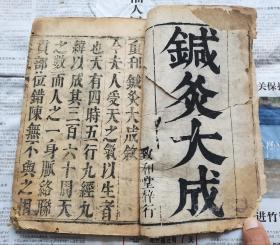 鍼灸大成
致和堂梓行
重刊鍼灸大成
夫人受天之氣以生者
也天有四時五行九經九
緯以成其三百六十周天
之數而人之一身脈絡聯
貫部位錯陳無不與之相